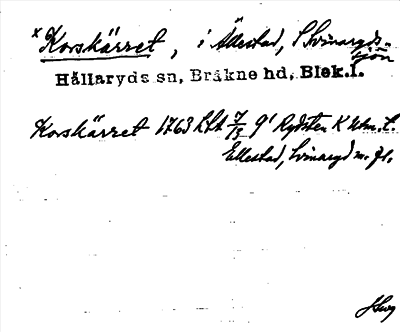 x Korskärret, i Ällestad, Svinaryds-
sjön
Hällaryds sn, Bräkne hd, Blek.l.
Korskärret 1763 LSA 7/15 9¹ Rydsten K Utm. t.
Ellestad, Svinaryd m. fl.